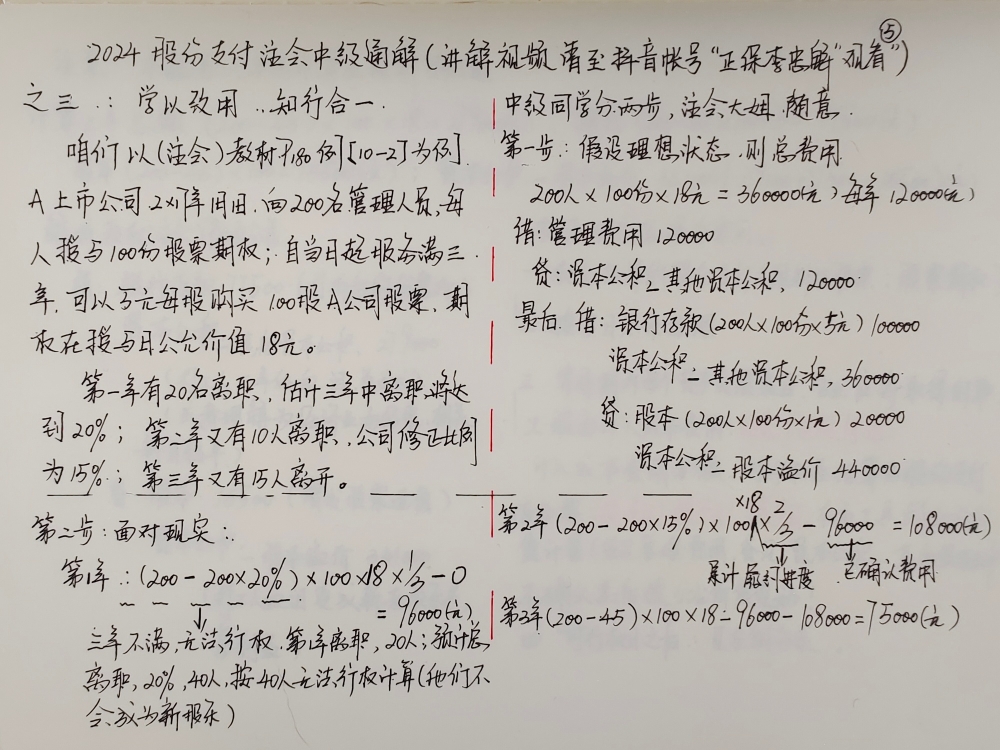 ⑤
2024股份支付注会中级通解(讲解视频请至抖音帐号"正保李忠魁"观看")
之三:学以致用..知行合一.
咱们以(注会)教材P180例[10-2]为例.
A上市公司2X1年1月1日.向200名管理人员,每
人授与100份股票期权;自当日起服务满三
年,可以5元每股购买100股A公司股票,期
权在授与日公允价值18元。
第一年有20名离职,估计三年中离职将达
到20%;第二年又有10人离职,公司修正比例
为15%;第三年又有15人离开。
第二步:面对现实:
第1年:(200-200×20%)×100×18×1/3-0
=96000(元)
三年不满,无法行权.第1年离职,20人;预计总
离职,20%,40人,按40人无法行权计算(他们不
会成为新股东)
中级同学分两步,注会大姐.随意.
第一步:假设理想状态.则总费用
200人×100份×18元=360000(元)每年120000(元)
借:管理费用120000
贷:资本公积-其他资本公积,120000
最后.借:银行存款(200人×100份×5元)100000
资本公积-其他资本公积,360000
贷:股本(200人×100份×1元)20000
资本公积-股本溢价440000
第2年(200-200×15%)×100×18×2/3-96000=108000(元)
累计完成进度 已确认费用
第3年(200-45)×100×18-96000-108000=75000(元)